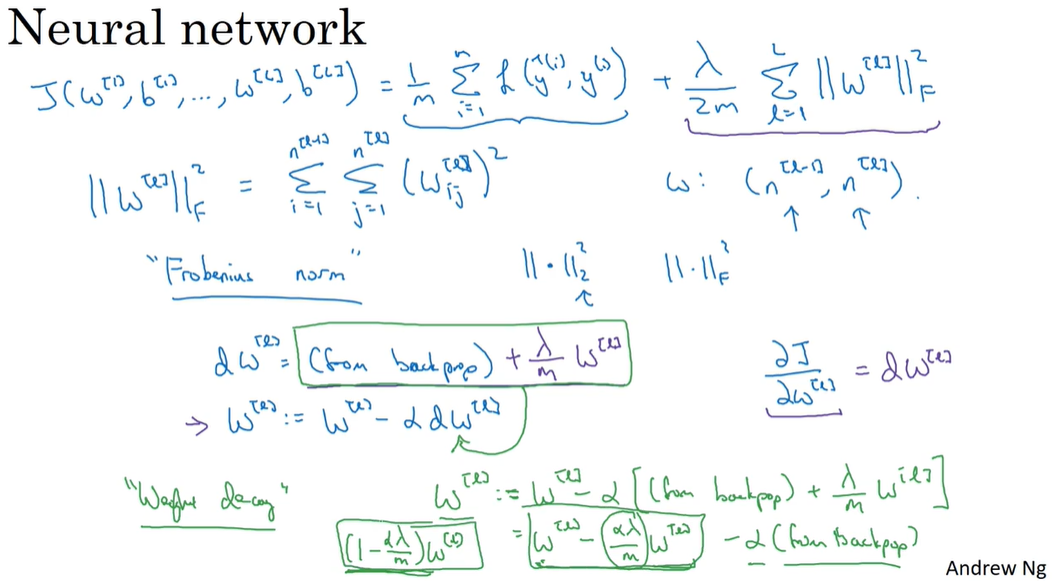 Neural network
J(w^[1], b^[1], ..., w^[L], b^[L]) = 1/m ∑_{i=1}^{n} L(ŷ^(i), y^(i)) + λ/2m ∑_{l=1}^{L} ||w^[l]||_F^2
||w^[l]||_F^2 = ∑_{i=1}^{n^[l-1]} ∑_{j=1}^{n^[l]} (w_ij^[l])^2 w: (n^[l-1], n^[l]).
"Frobenius norm" ||·||_2^2 ||·||_F^2
dw^[l] = (from backprop) + λ/m w^[l] ∂J/∂w^[l] = dw^[l]
→ w^[l] := w^[l] - α dw^[l]
"Weight decay" w^[l] := w^[l] - α [(from backpop) + λ/m w^[l]]
(1 - αλ/m) w^[l] = w^[l] - αλ/m w^[l] - α (from backpop)
Andrew Ng